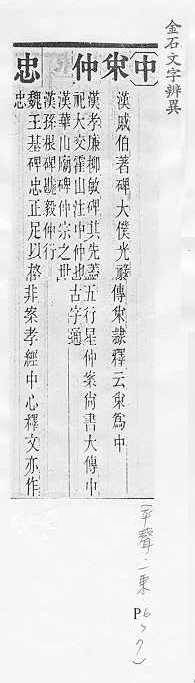 金石文字辨異
中
𠁧 漢戚伯著碑大僕光祿傳𠁧隸釋云𠁧爲中
仲 漢孝廉柳敏碑其先蓋五行星仲案尙書大傳中
祀大交霍山注中仲也古字通
漢華山廟碑仲宗之世
漢孫根碑勘毅仲行
忠 魏王基碑忠正足以格非案孝經中心釋文亦作
忠
(平聲一東
P6
7)